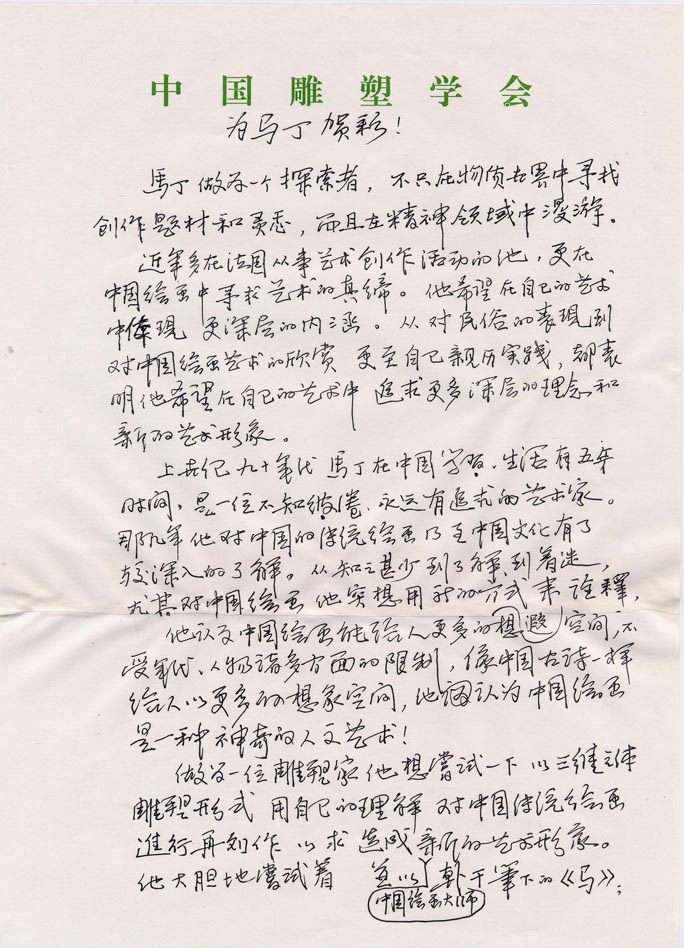 中国雕塑学会
为马丁贺彩！
馬丁做为一个探索者，不只在物质世界中寻找
创作题材和灵感，而且在精神领域中漫游。
近年多在法国从事艺术创作活动的他，更在
中国绘画中寻求艺术的真缔。他希望在自己的艺术
中体现更深层的内涵。从对民俗的表现到
对中国绘画艺术的欣赏更至自己亲历实践，都表
明他希望在自己的艺术中追求更多深层的理念和
新的艺术形象。
上世纪九十年代馬丁在中国学习、生活有五年
时间，是一位不知疲倦、永远有追求的艺术家。
那几年他对中国的传统绘画乃至中国文化有了
较深入的了解。从知之甚少到了解到着迷，
尤其对中国绘画他突想用新的方式来诠釋，
他认为中国绘画能给人更多的想遐空间，不
受年代、人物诸多方面的限制，像中国古诗一样
给人以更多的想象空间，他认为中国绘画
是一种神奇的人文艺术！
做为一位雕塑家他想嘗试一下以三维立体
雕塑形式用自己的理解对中国传统绘画
進行再创作以求造成新的艺术形象。
他大胆地嘗试着 並以韩干筆下的《马》；
中国绘画大师